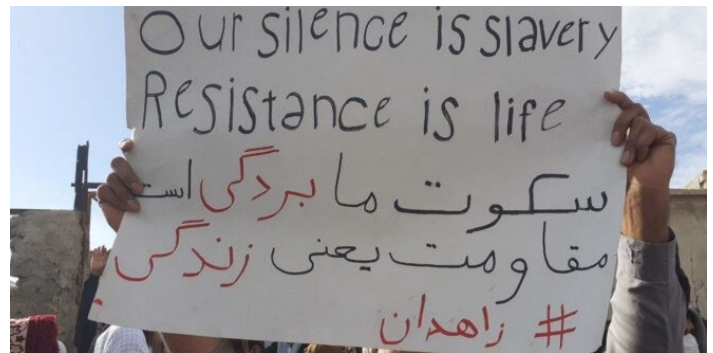 Our silence is slavery
Resistance is life
سکوت ما بردگی است
مقاومت یعنی زندگی
# زاهدان